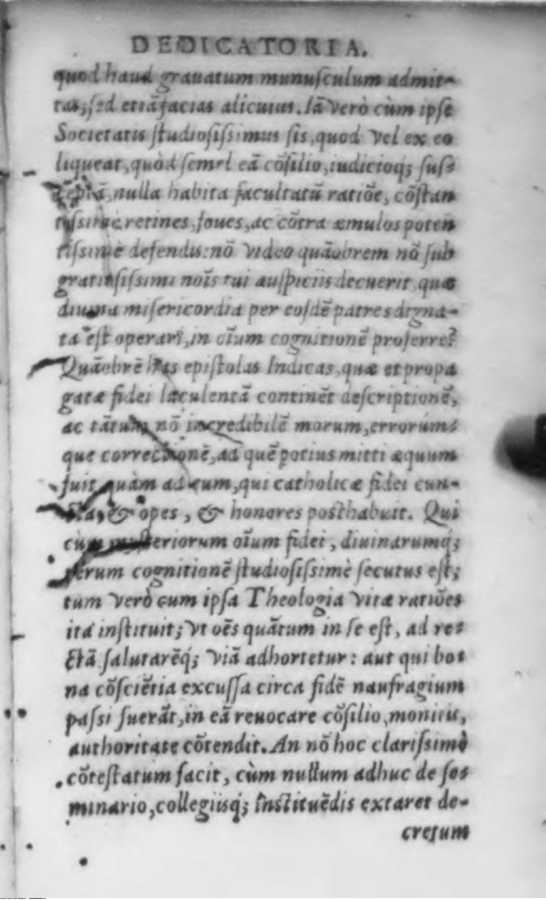 DEDICATORIA.
quod haud grauatum munuſculum admit-
tas; ſed etiā facias alicuius. Iā verò cùm ipſe
Societatis ſtudioſiſsimus ſis, quod vel ex eo
liqueat, quòd ſemel eā cōſilio, iudicioq; ſuſ-
ceptā, nulla habita facultatū ratiōe, cōſtan
tiſsimè retines, foues, ac cōtra æmulos poten
tiſsimè defendis: nō video quāobrem nō ſub
gratioſiſsimi noīs tui auſpiciis decuerit, quæ
diuina miſericordia per eoſdē patres digna-
ta eſt operari, in oīum cognitionē proferre?
Quāobrē has epiſtolas Indicas, quæ et propa
gatæ fidei luculentā continēt deſcriptionē,
ac tātum nō incredibilē morum, errorum-
que correctionē, ad quē potius mitti æquum
fuit, quàm ad eum, qui catholicæ fidei cun-
cta, & opes, & honores poſthabuit. Qui
cùm myſteriorum oīum fidei, diuinarumq;
rerum cognitionē ſtudioſiſsimè ſecutus eſt;
tum verò cum ipſa Theologia vitæ ratiōes
ita inſtituit; vt oēs quātum in ſe eſt, ad re-
ctā ſalutarēq; viā adhortetur: aut qui bo-
na cōſciētia excuſſa circa fidē naufragium
paſsi fuerāt, in eā reuocare cōſilio, monitis,
authoritate cōtendit. An nō hoc clariſsimè
cōteſtatum facit, cùm nullum adhuc de ſe-
minario, collegiisq; inſtituēdis extaret de-
cretum